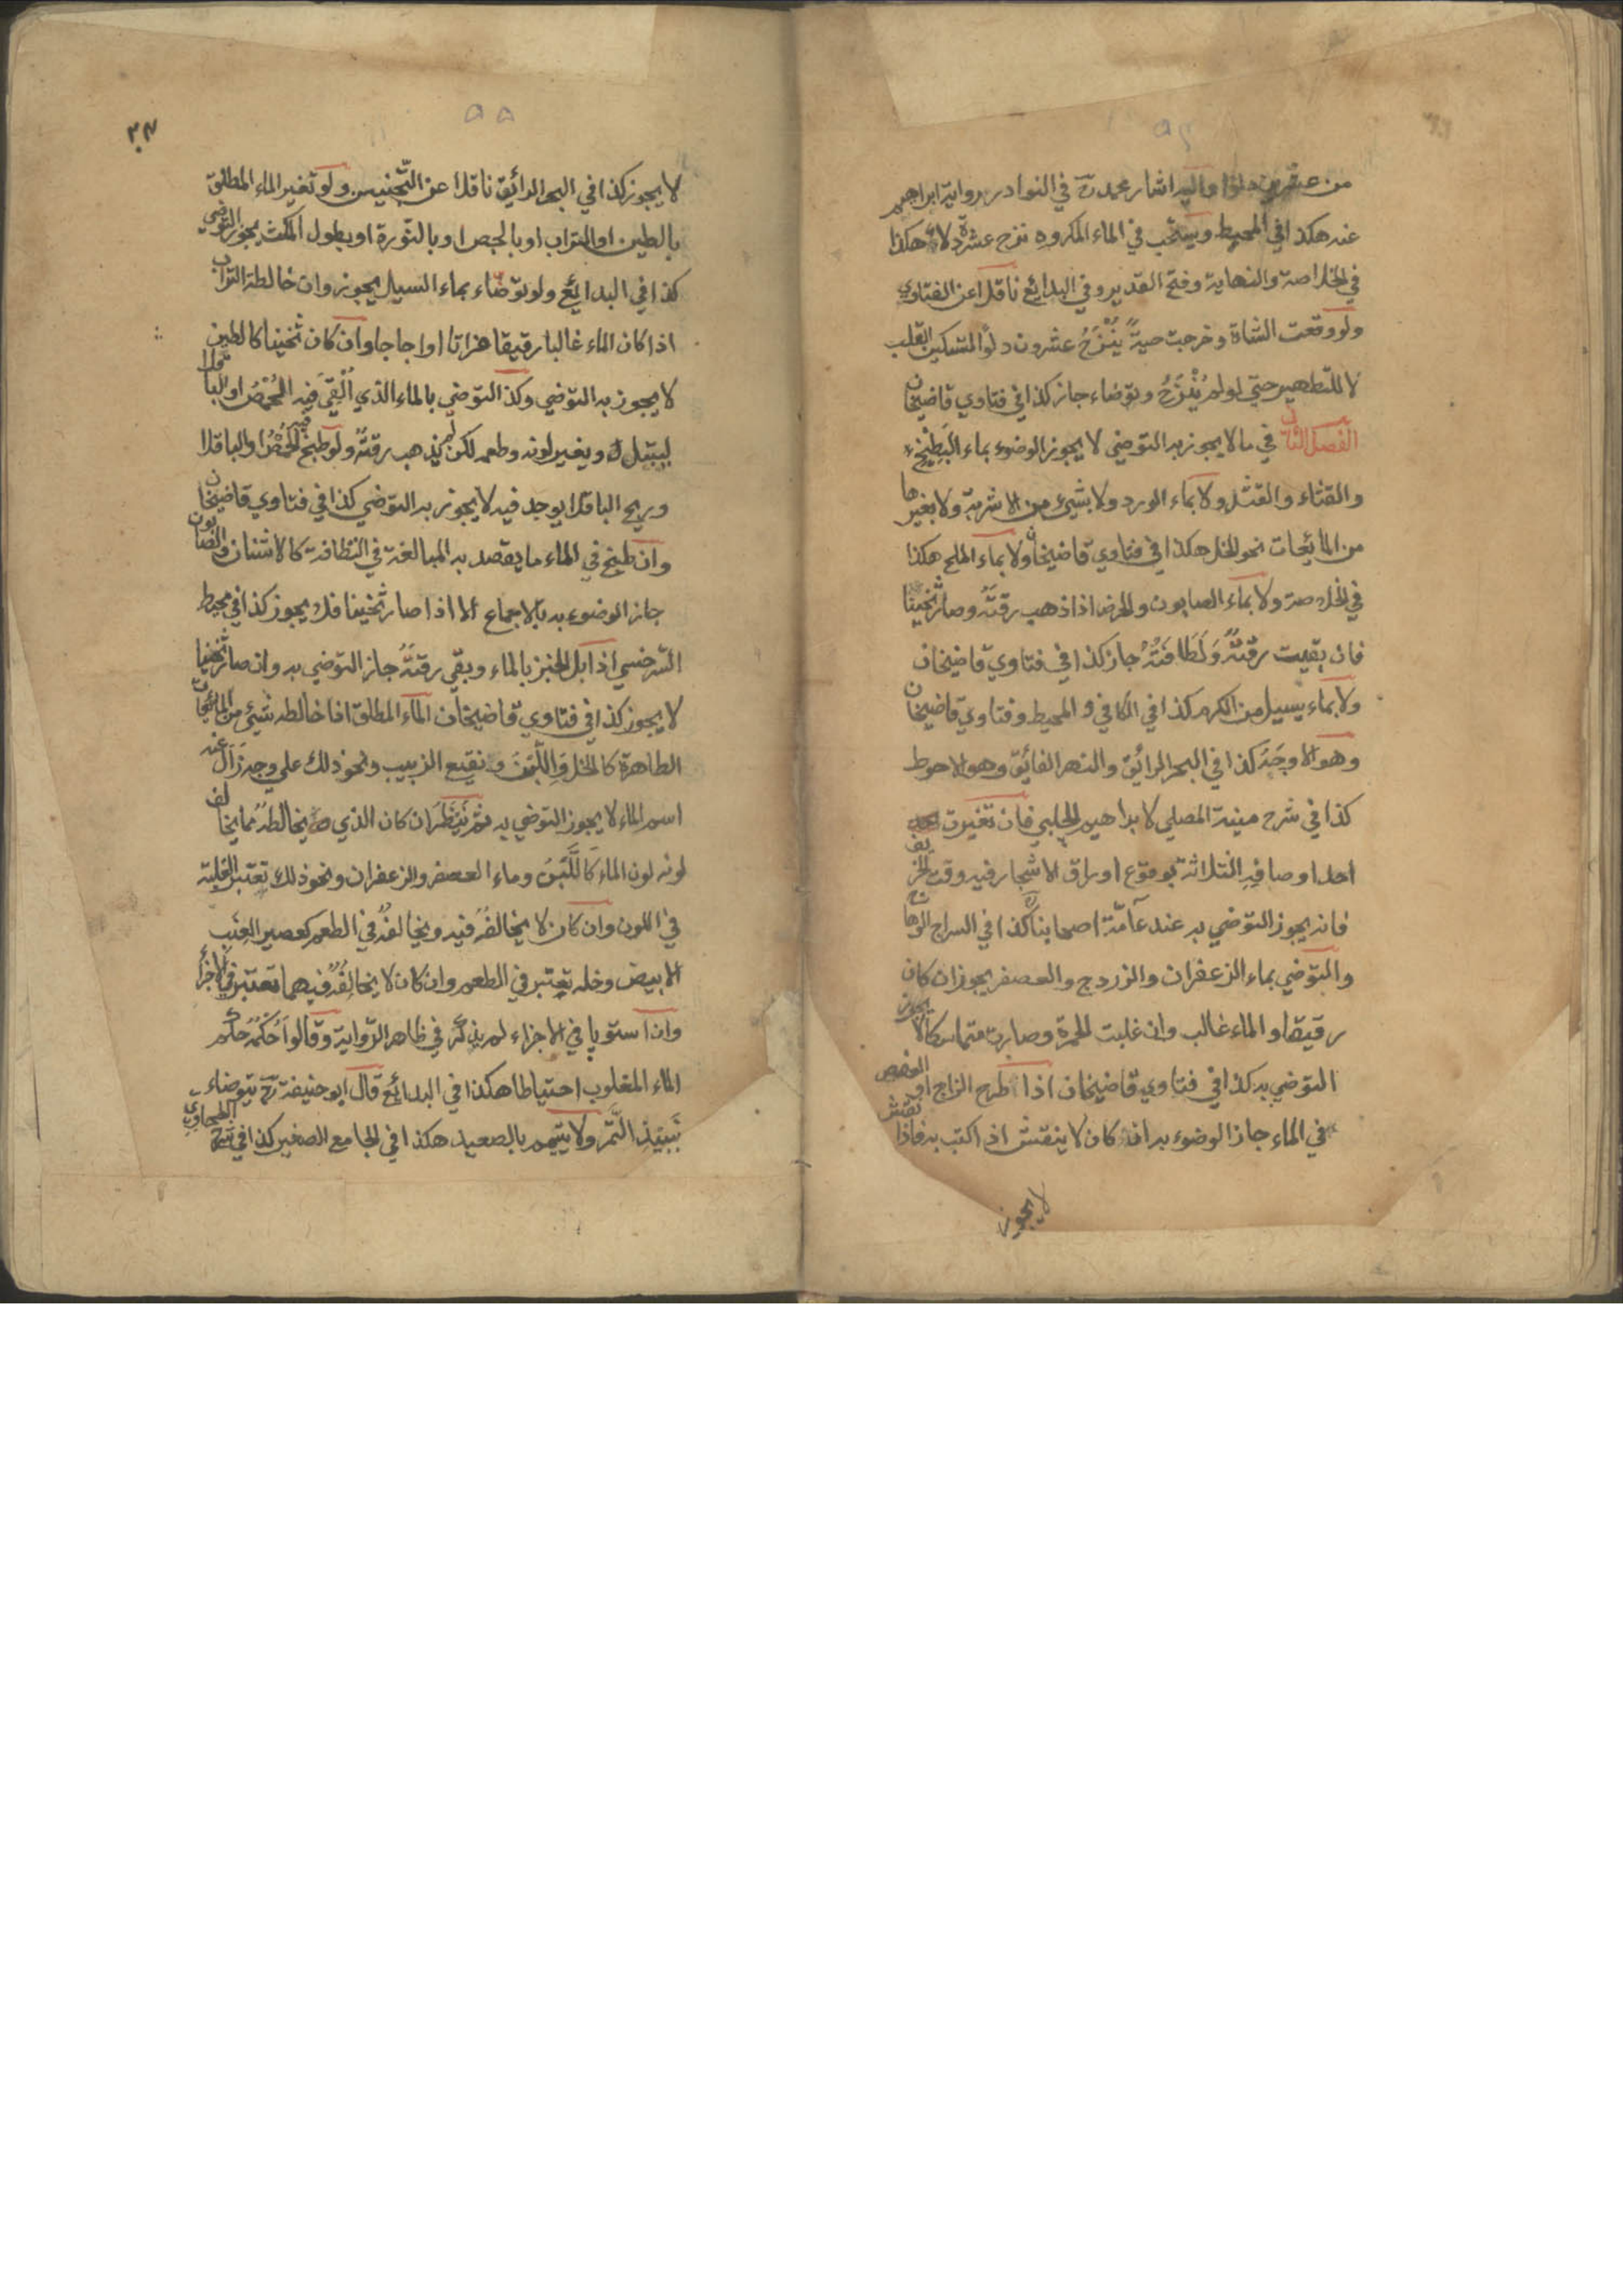 من عشرين دلوا واليه اشار محمد رح في النوادر برواية ابراهيم
عنه هكذا في المحيط ويستحب في الماء المكروه نزح عشرة دلاء هكذا
في الخلاصة والنهاية وفتح القدير وفي البدائع ناقلا عن الفتاوي
ولو وقعت الشاة وخرجت حيةً يُنْزَحُ عشرون دلوًا لتسكين القلب
لا للتطهير حتي لو لم يُنْزَحْ وتوضاء جاز كذا في فتاوي قاضيخان
الفصل الثاني في ما لا يجوز به التوضي لا يجوز الوضوء بماء البَطِيْخِ
والقثاء والقثد ولا بماء الورد ولا بشيئ من الاشربة ولا بغيرها
من المائعات نحو الخل هكذا في فتاوي قاضيخان ولا بماء الملح هكذا
في الخلاصة ولا بماء الصابون والحرض اذا ذهب رقتُه وصار ثخينا
فان بقيت رقتُهُ وَلَطَافَتُهُ جاز كذا في فتاوي قاضيخان
ولا بماء يسيل من الكرم كذا في الكافي و المحيط وفتاوي قاضيخان
وهو الاوجَهُ كذا في البحر الرائق والنهر الفائق وهو الاحوط
كذا في شرح منية المصلي لابراهيم الحلبي فان تغيرت
احد اوصافِهِ الثلاثة بوقوع اوراق الاشجار فيه وقت الخريف
فانه يجوز التوضي به عند عآمّة اصحابنا كذا في السراج الوهاج
والتوضي بماء الزعفران والزردج والعصفر يجوز ان كان
رقيقا و الماء غالب وان غلبت الحمرة وصارت متماسكا لا يجوز
التوضي به كذا في فتاوي قاضيخان اذا طرح الزاج او العفص
في الماء جاز الوضوء به ان كان لا ينقش اذا كتب به فاذا نقش
لا يجوز
لا يجوز كذا في البحر الرائق ناقلا عن التّجنيس ولو تغير الماء المطلق
بالطين او التراب او بالجص او بالنورة او بطول المكث يجوز التوضي
كذا في البدائع ولو توضاء بماء السيل يجوز وان خالطه التراب
اذا كان الماء غالبا رقيقا فراتا او اجاجا وان كان ثخينا كالطين
لا يجوز به التوضي وكذا التوضي بالماء الذي اُلْقِيَ فيه الحُمّصُ او الباقلا
ليبتل و يغير لونه وطعمه لكن لم يذهب رقتُهُ ولو طبخ فيه الحُمّصُ او الباقلا
وريح الباقلا يوجد فيه لا يجوز به التوضي كذا في فتاوي قاضيخان
وان طبخ في الماء ما يقصد به المبالغة في النظافة كالاشنان والصابون
جاز الوضوء به بالاجماع الا اذا صار ثخينا فلا يجوز كذا في محيط
السّرخسي اذا بَلّ الخبز بالماء وبقي رقتُهُ جاز التوضي به وان صار ثخينا
لا يجوز كذا في فتاوي قاضيخان الماء المطلق اذا خالطه شيئ من المائعات
الطاهرة كالخل وَاللَّبَنَ و نقيع الزبيب ونحو ذلك علي وجه زَالَ عنه
اسم الماء لا يجوز التوضي به ثم يَنْظُرَ ان كان الذي يخالطُهُ مما يخالف
لونه لون الماء كَاللَّبَنَ وماء العصفر والزعفران ونحو ذلك تعتبر الغلبة
في اللون وان كان لا يخالفُهُ فيه ويخالفُهُ في الطعم كعصير العِنَبِ
الابيض وخله يعتبر في الطعم وان كان لا يخالِفُهُ فيهما تعتبر في الاجزاء
وان استويا في الاجزاء لم يذكر في ظاهر الرّواية وقالوا حُكْمُهُ حُكْمُ
الماء المغلوب احتياطا هكذا في البدائع قال ابو حنيفة رح يتوضاء
بنَبِيْذِ التَّمْر ولا يتيمم بالصعيد هكذا في الجامع الصغير كذا في شرح الطحاوي